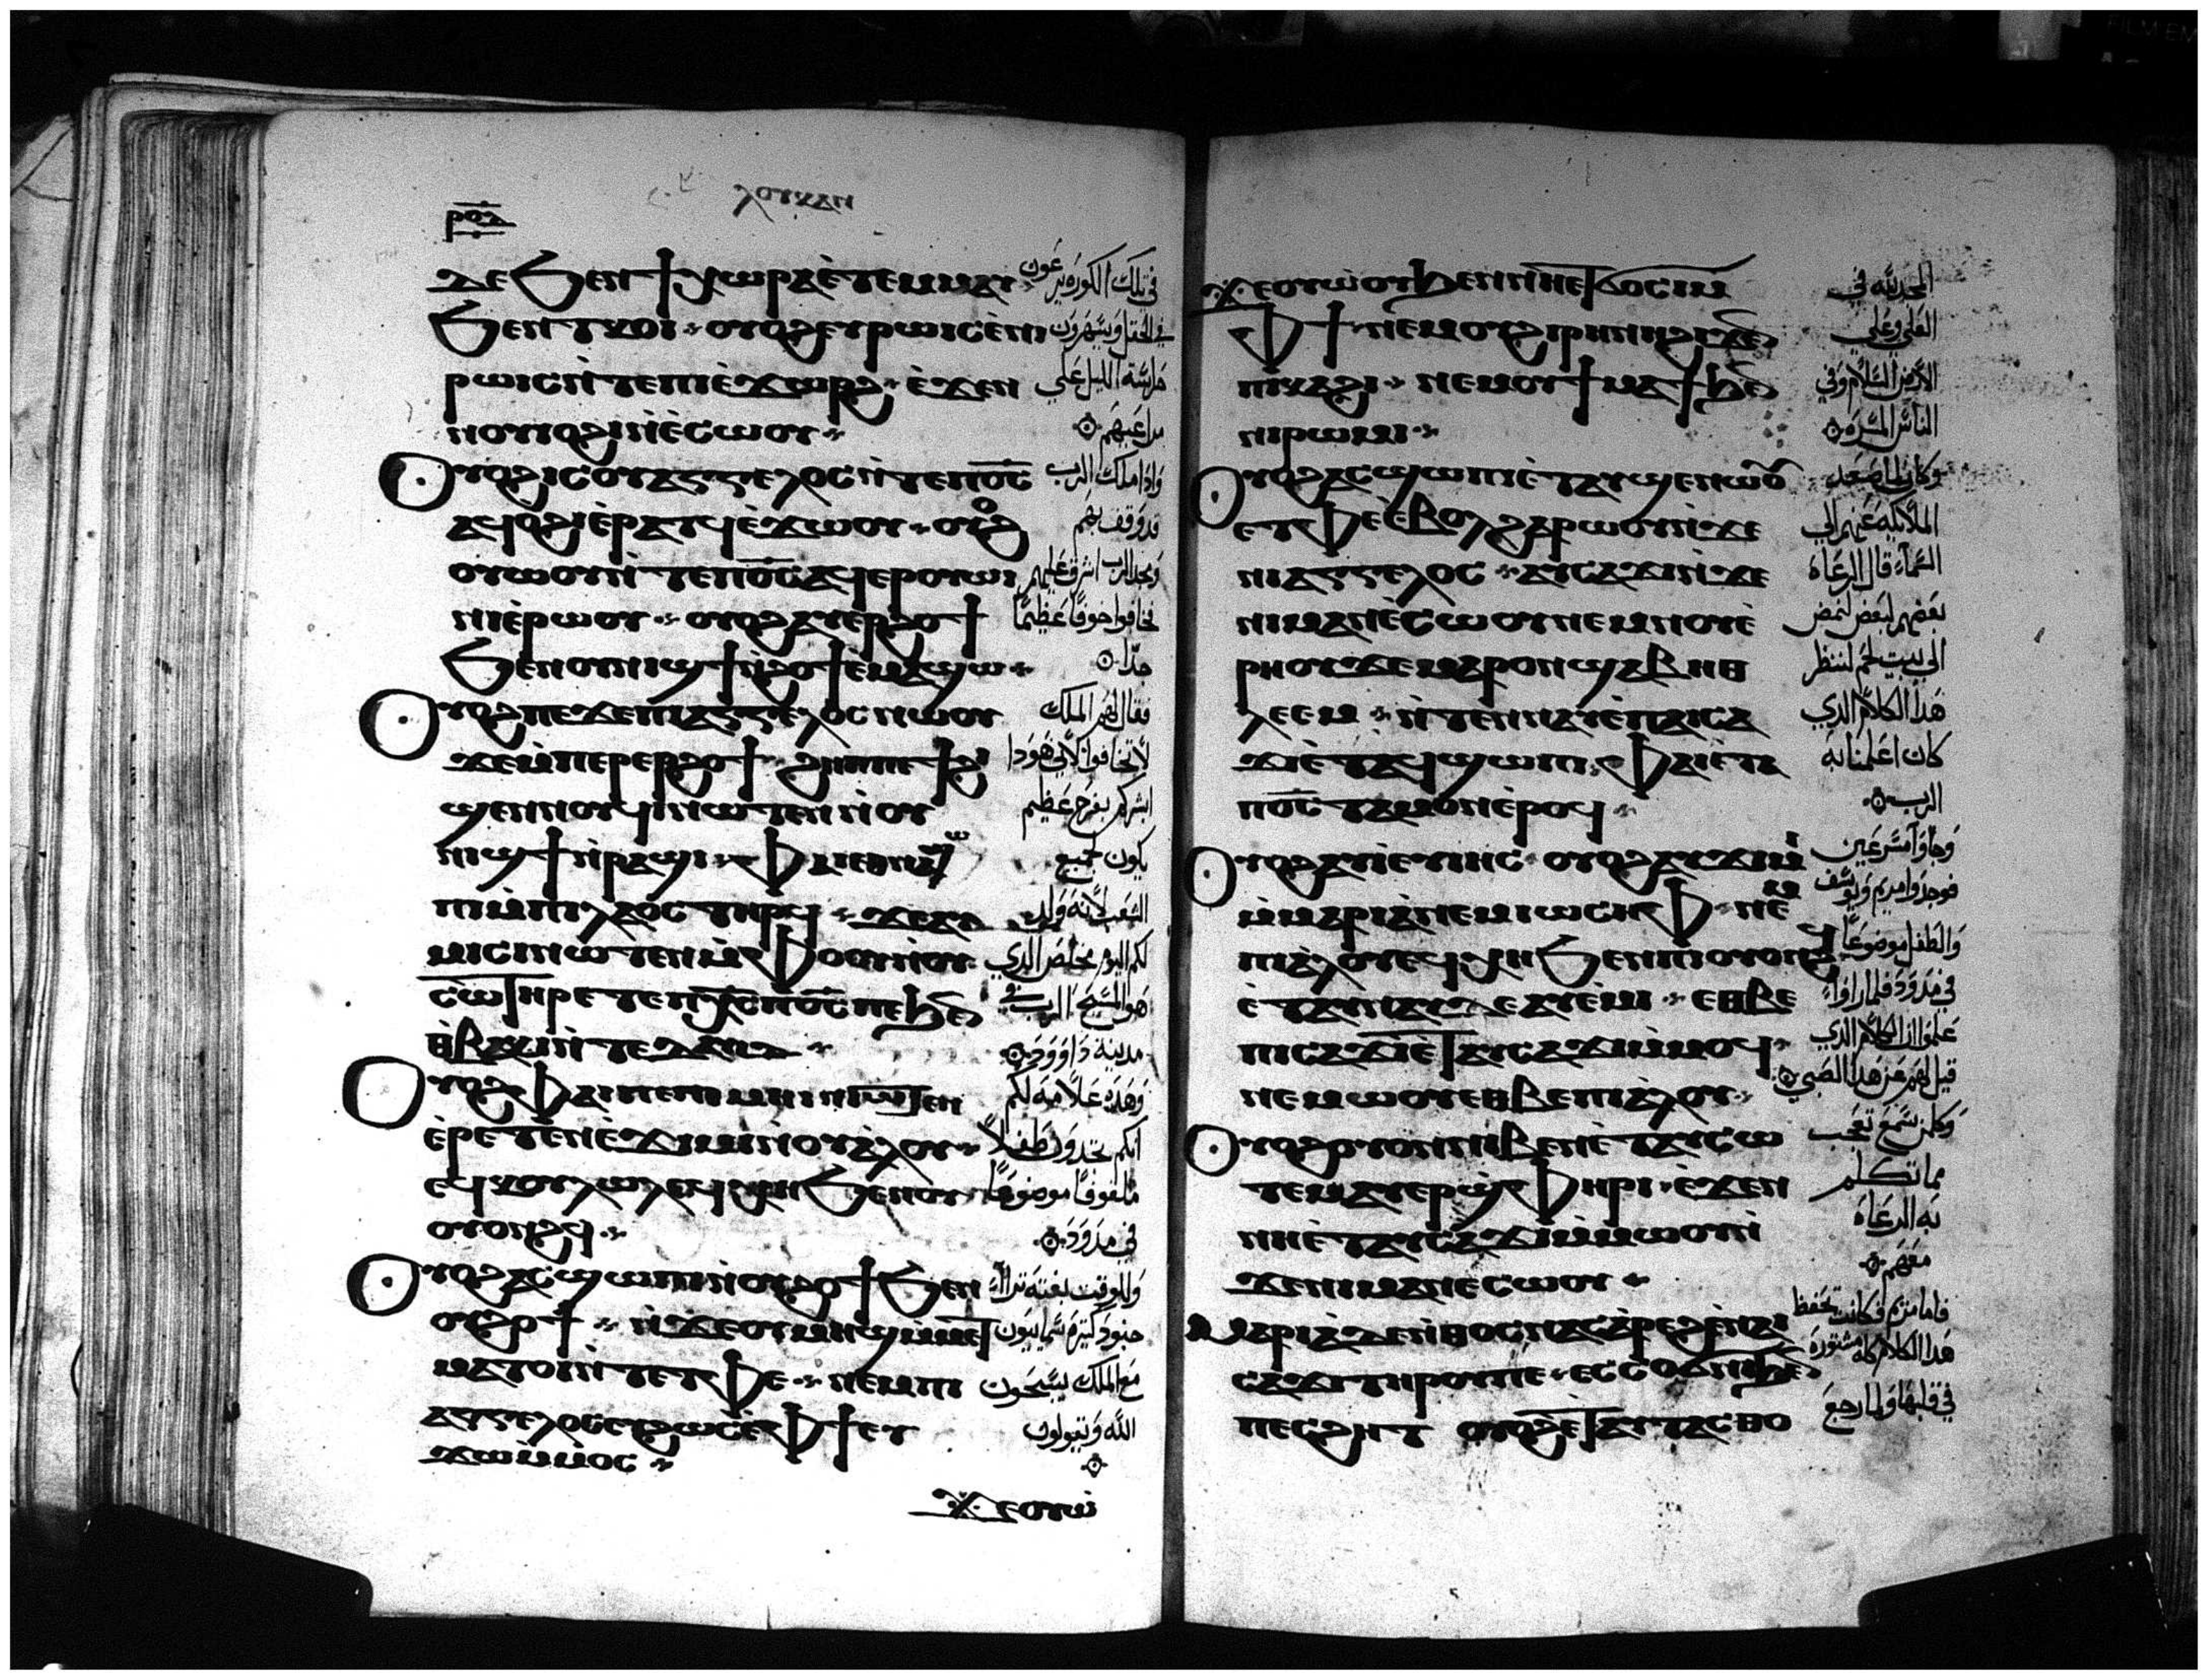 ⲣⲟⲇ
ⲗⲟⲩⲕⲁⲛ
ⲇⲉ ϧⲉⲛ ϯⲭⲱⲣⲁ ⲉ̀ⲧⲉⲙⲙⲁⲩ
ϧⲉⲛ ⲧⲕⲟⲓ ⲟⲩⲟϩ ⲉⲩⲣⲱⲓⲥ ⲉ̀ⲛⲓ
ⲣⲱⲓⲥ ⲛ̀ⲧⲉ ⲡⲓⲉ̀ϫⲱⲣϩ ⲉ̀ϫⲉⲛ
ⲛⲟⲩⲟϩⲓ ⲛ̀ⲉ̀ⲥⲱⲟⲩ
ⲟⲩⲟϩ ⲓⲥ ⲟⲩⲁⲅⲅⲉⲗⲟⲥ ⲛ̀ⲧⲉ ⲡⲟ̅ⲥ̅
ⲁϥⲟ̀ϩⲓ ⲉ̀ⲣⲁⲧϥ ⲉ̀ϫⲱⲟⲩ ⲟⲩⲟϩ
ⲟⲩⲱⲟⲩ ⲛ̀ⲧⲉ ⲡⲟ̅ⲥ̅ ⲁϥⲉⲣⲟⲩⲱⲓ
ⲛⲓⲉ̀ⲣⲱⲟⲩ ⲟⲩⲟϩ ⲁⲩⲉⲣϩⲟϯ
ϧⲉⲛ ⲟⲩⲛⲓϣϯ ⲛ̀ϩⲟϯ ⲉ̀ⲙⲁϣⲱ
ⲟⲩⲟϩ ⲡⲉϫⲉ ⲡⲓⲁⲅⲅⲉⲗⲟⲥ ⲛⲱⲟⲩ
ϫⲉ ⲙ̀ⲡⲉⲣⲉⲣϩⲟϯ ϩⲏⲡⲡⲉ ϯϩⲓ
ϣⲉⲛⲛⲟⲩϥⲓ ⲛⲱⲧⲉⲛ ⲛ̀ⲟⲩ
ⲛⲓϣϯ ⲛ̀ⲣⲁϣⲓ ⲫⲁⲓ ⲉⲑⲛⲁϣⲱ
ⲡⲓ ⲙ̀ⲡⲓⲗⲁⲟⲥ ⲧⲏⲣϥ ϫⲉ ⲁⲩ
ⲙⲓⲥⲓ ⲛⲱⲧⲉⲛ ⲙ̀ⲫⲟⲟⲩ ⲛ̀ⲟⲩ
ⲥⲱⲧⲏⲣ ⲉⲧⲉ ⲡⲭ̅ⲥ̅ ⲡⲟ̅ⲥ̅ ⲡⲉ ϧⲉⲛ
ⲑ̀ⲃⲁⲕⲓ ⲛ̀ⲧⲉ ⲇⲁⲩⲓⲇ
ⲟⲩⲟϩ ⲫⲁⲓ ⲡⲉ ⲡⲓⲙⲏⲓⲛⲓ ⲛⲱⲧⲉⲛ
ⲉ̀ⲣⲉⲧⲉⲛⲉ̀ϫⲓⲙⲓ ⲛ̀ⲟⲩⲁ̀ⲗⲟⲩ
ⲉϥⲕⲟⲩⲗⲱⲗ ⲉϥⲭⲏ ϧⲉⲛ ⲟⲩ
ⲟⲩⲟⲛϩϥ
ⲟⲩⲟϩ ⲁⲥϣⲱⲡⲓ ⲛ̀ⲟⲩϩⲟϯ ϧⲉⲛ
ⲟⲩϩⲟϯ ⲛ̀ϫⲉ ⲟⲩⲙⲏϣ ⲙ̀ⲙⲉⲧ
ⲙⲁⲧⲟⲓ ⲛ̀ⲧⲉ ⲧⲫⲉ ⲛⲉⲙ ⲡⲓ
ⲁⲅⲅⲉⲗⲟⲥ ⲉⲩϩⲱⲥ ⲉ̀ⲫϯ ⲉⲩ
ϫⲱ ⲙ̀ⲙⲟⲥ
ϫⲉ ⲟⲩⲱ̀
في تلك الكوره يرعون
في الحقل ويسهرون
حراسة الليل علي
مراعيهم
واذا ملك الرب
قد وقف بهم
ومجد الرب اشرق عليهم
فخافوا خوفا عظيما
جدا
فقال لهم الملك
لا تخافوا لاني هودا
ابشركم بفرح عظيم
يكون لجميع
الشعب لانه ولد
لكم اليوم مخلص الدي
هو المسيح الرب في
مدينة داوود
وهده علامه لكم
انكم تجدون طفلا
ملفوفا موضوعا
في مدود
وللوقت بغته تراا
جنود كثيره سماييون
مع الملك يسبحون
الله ويقولون
ϫⲉ ⲟⲩⲱ̀ⲟⲩ ϧⲉⲛ ⲛⲏⲉⲧϭⲟⲥⲓ ⲙ̀
ⲫϯ ⲛⲉⲙ ⲟⲩϩⲓⲣⲏⲛⲏ ϩⲓϫⲉⲛ
ⲡⲓⲕⲁϩⲓ ⲛⲉⲙ ⲟⲩϯⲙⲁϯ ϧⲉⲛ
ⲛⲓⲣⲱⲙⲓ
ⲟⲩⲟϩ ⲁⲥϣⲱⲡⲓ ⲉ̀ⲧⲁⲩϣⲉⲛⲱⲟⲩ
ⲉⲧⲫⲉ ⲉ̀ⲃⲟⲗ ϩⲁⲣⲱⲟⲩ ⲛ̀ϫⲉ
ⲛⲓⲁⲅⲅⲉⲗⲟⲥ ⲁⲩⲥⲁϫⲓ ⲛ̀ϫⲉ
ⲛⲓⲙⲁⲛⲉ̀ⲥⲱⲟⲩ ⲛⲉⲙ ⲛⲟⲩⲉ̀
ⲣⲏⲟⲩ ϫⲉ ⲙⲁⲣⲟⲛ ϣⲁ ⲃⲏⲑ
ⲗⲉⲉⲙ ⲛ̀ⲧⲉⲛⲛⲁⲩ ⲉ̀ⲡⲁⲓⲥⲁ
ϫⲓ ⲉ̀ⲧⲁϥϣⲱⲡⲓ ⲫⲁⲓ ⲉ̀ⲧⲁ
ⲡⲟ̅ⲥ̅ ⲧⲁⲙⲟⲛ ⲉ̀ⲣⲟϥ
ⲟⲩⲟϩ ⲁⲩⲓ̀ ⲉⲩⲓⲏⲥ ⲟⲩⲟϩ ⲁⲩϫⲓⲙⲓ
ⲙ̀ⲙⲁⲣⲓⲁ ⲛⲉⲙ ⲓⲱⲥⲏⲫ ⲛⲉⲙ
ⲡⲓⲁ̀ⲗⲟⲩ ⲉϥⲭⲏ ϧⲉⲛ ⲡⲓⲟⲩⲟⲛϩϥ
ⲉ̀ⲧⲁⲩⲛⲁⲩ ⲇⲉ ⲁⲩⲉ̀ⲙⲓ ⲉⲑⲃⲉ
ⲡⲓⲥⲁϫⲓ ⲉ̀ⲧⲁⲩⲥⲁϫⲓ ⲙ̀ⲙⲟϥ
ⲛⲉⲙⲱⲟⲩ ⲉⲑⲃⲉ ⲡⲓⲁ̀ⲗⲟⲩ
ⲟⲩⲟϩ ⲟⲩⲟⲛ ⲛⲓⲃⲉⲛ ⲉ̀ⲧⲁⲩⲥⲱ
ⲧⲉⲙ ⲁⲩⲉⲣϣ̀ⲫⲏⲣⲓ ⲉ̀ϫⲉⲛ
ⲛⲏⲉ̀ⲧⲁⲩⲥⲁϫⲓ ⲙ̀ⲙⲱⲟⲩ ⲛ̀
ϫⲉ ⲛⲓⲙⲁⲛⲉⲥⲱⲟⲩ
ⲙⲁⲣⲓⲁ̀ ⲇⲉ ⲛ̀ⲑⲟⲥ ⲛⲁⲥⲁ̀ⲣⲉϩ ⲉ̀ⲛⲁⲓ
ⲥⲁϫⲓ ⲧⲏⲣⲟⲩ ⲡⲉ ⲉⲥⲥⲟϭⲛⲓ ϧⲉⲛ
ⲡⲉⲥϩⲏⲧ ⲟⲩⲟϩ ⲉ̀ⲧⲁⲩⲧⲁⲥⲑⲟ
المجد لله في
العلي وعلي
الارض السلام وفي
الناس المسره
وكان لما صعد
الملايكه عنهم الي
السماء قال الرعاه
بعضهم لبعض نمض
الي بيت لحم لننظر
هدا الكلام الدي
كان اعلمنا به
الرب
وجاوا مسرعين
فوجدوا مريم ويوسف
والطفل موضوعا
في مدود فلما راوا
علموا ان الكلام الدي
قيل لهم عن هدا الصبي
وكلمن سمع تعجب
مما تكلم
به الرعاه
معهم
فاما مريم فكانت تحفظ
هدا الكلام كله
في قلبها ولما رجع